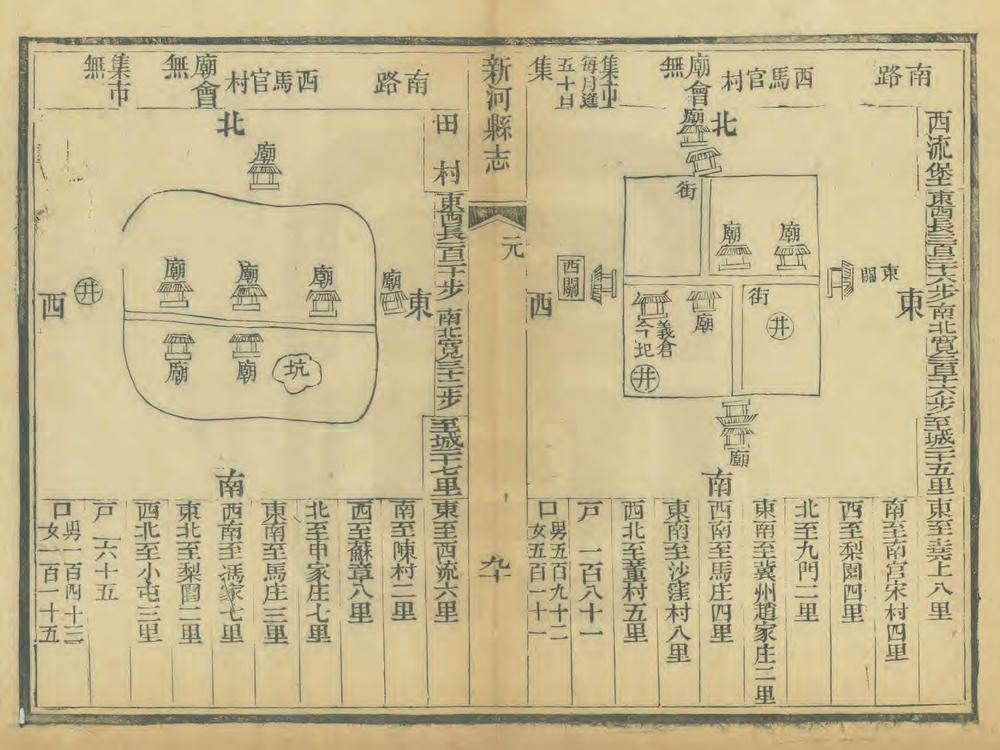 南路
西馬官村
廟會無
集市每月逢五十日集
西流堡
東西長三百三十六步
南北寬三百十六步
至城二十五里
北
廟
街
廟
廟
東關
東
西關
西
義倉今圯
廟
街
井
井
廟
南
東至堯上八里
南至南宮宋村四里
西至梨園四里
北至九門二里
東南至冀州趙家庄二里
西南至馬庄四里
東南至沙窪村八里
西北至董村五里
戸 一百八十一
口男五百九十二
女五百一十一
新河縣志
元
九十
南路
西馬官村
廟會無
集市無
田村
南北寬三十二步
至城二十七里
北
廟
廟
廟
廟
廟
東
井
西
廟
廟
坑
南
東至西流六里
南至陳村二里
西至蘇章八里
北至申家庄七里
東南至馬庄三里
西南至馮家七里
東北至梨園二里
西北至小屯三里
戸 六十五
口男一百四十三
女一百一十五